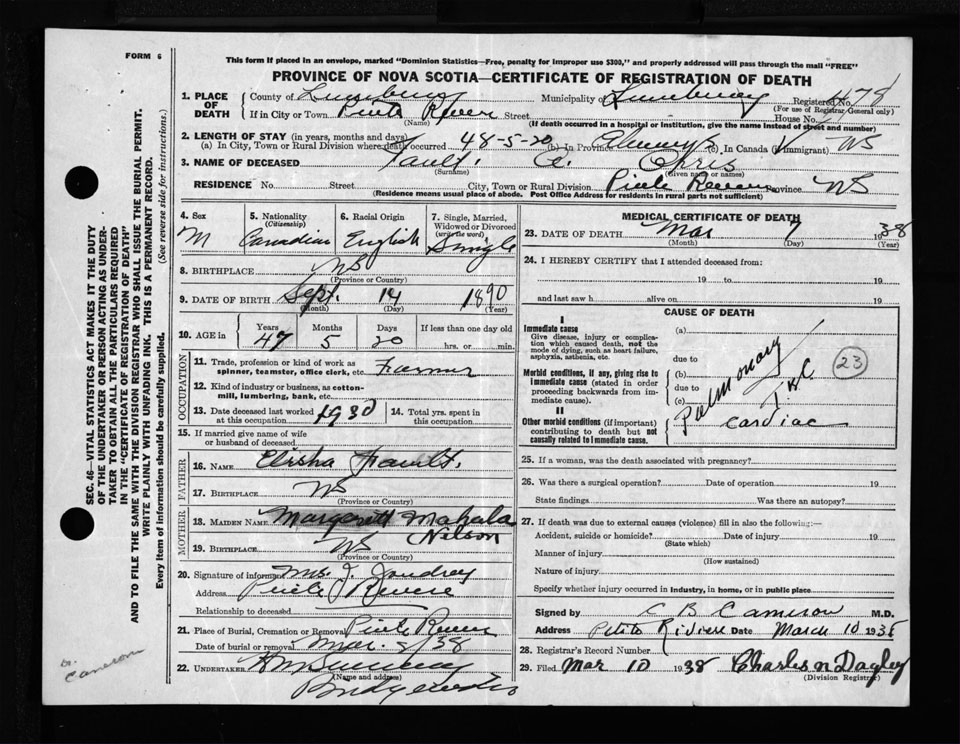 FORM 6
This form if placed in an envelope, marked "Dominion Statistics—Free, penalty for improper use $300," and properly addressed will pass through the mail "FREE"
PROVINCE OF NOVA SCOTIA—CERTIFICATE OF REGISTRATION OF DEATH
1. PLACE OF DEATH County of Lunenburg Municipality of Lunenburg Registered No. 478
(For use of Registrar General only)
If in City or Town Street House No.
(Name) (If death occurred in a hospital or institution, give the name instead of street and number)
2. LENGTH OF STAY (in years, months and days)
(a) In City, Town or Rural Division where death occurred 48-5-20 (b) In Province (c) In Canada (if immigrant) NS
3. NAME OF DECEASED Chris
(Surname) (Given name or names)
RESIDENCE No. Street City, Town or Rural Division Province NS
(Residence means usual place of abode. Post Office Address for residents in rural parts not sufficient)
4. Sex M
5. Nationality (Citizenship) Canadian
6. Racial Origin English
7. Single, Married, Widowed or Divorced (write the word) Single
8. BIRTHPLACE NS
(Province or Country)
9. DATE OF BIRTH Sept. 14 1890
(Month) (Day) (Year)
10. AGE in Years 47 Months 5 Days 20 If less than one day old hrs. or min.
OCCUPATION
11. Trade, profession or kind of work as spinner, teamster, office clerk, etc. Farmer
12. Kind of industry or business, as cotton-mill, lumbering, bank, etc.
13. Date deceased last worked at this occupation 1930
14. Total yrs. spent in this occupation
15. If married give name of wife or husband of deceased
FATHER
16. NAME Elisha
17. BIRTHPLACE NS
MOTHER
18. MAIDEN NAME Margarett Mahala Nelson
19. BIRTHPLACE NS
(Province or Country)
20. Signature of informant Mrs
Address
Relationship to deceased
21. Place of Burial, Cremation or Removal
Date of burial or removal Mar. /38
22. UNDERTAKER
(Name and address)
Bridgewater
MEDICAL CERTIFICATE OF DEATH
23. DATE OF DEATH Mar 7 1938
(Month) (Day) (Year)
24. I HEREBY CERTIFY that I attended deceased from:
19 to 19
and last saw h alive on 19
CAUSE OF DEATH
I
Immediate cause
Give disease, injury or complication which caused death, not the mode of dying, such as heart failure, asphyxia, asthenia, etc.
Morbid conditions, if any, giving rise to immediate cause (stated in order proceeding backwards from immediate cause).
II
Other morbid conditions (if important) contributing to death but not causally related to immediate cause.
(a)
due to
(b)
due to
(c)
Pulmonary
Cardiac
23
25. If a woman, was the death associated with pregnancy?
26. Was there a surgical operation? Date of operation 19
State findings Was there an autopsy?
27. If death was due to external causes (violence) fill in also the following:—
Accident, suicide or homicide? Date of injury 19
(State which)
Manner of injury
(How sustained)
Nature of injury
Specify whether injury occurred in industry, in home, or in public place.
Signed by C B Cameron M.D.
Address Petite Riviere Date March 10 1938
28. Registrar's Record Number
29. Filed Mar 10 1938 Charles N Dagley
(Division Registrar)
SEC. 46—VITAL STATISTICS ACT MAKES IT THE DUTY
OF THE UNDERTAKER OR PERSON ACTING AS UNDER-
TAKER TO OBTAIN ALL THE PARTICULARS REQUIRED
IN THE "CERTIFICATE OF REGISTRATION OF DEATH"
AND TO FILE THE SAME WITH THE DIVISION REGISTRAR WHO SHALL ISSUE THE BURIAL PERMIT.
WRITE PLAINLY WITH UNFADING INK. THIS IS A PERMANENT RECORD.
Every item of information should be carefully supplied. (See reverse side for instructions.)
Cameron